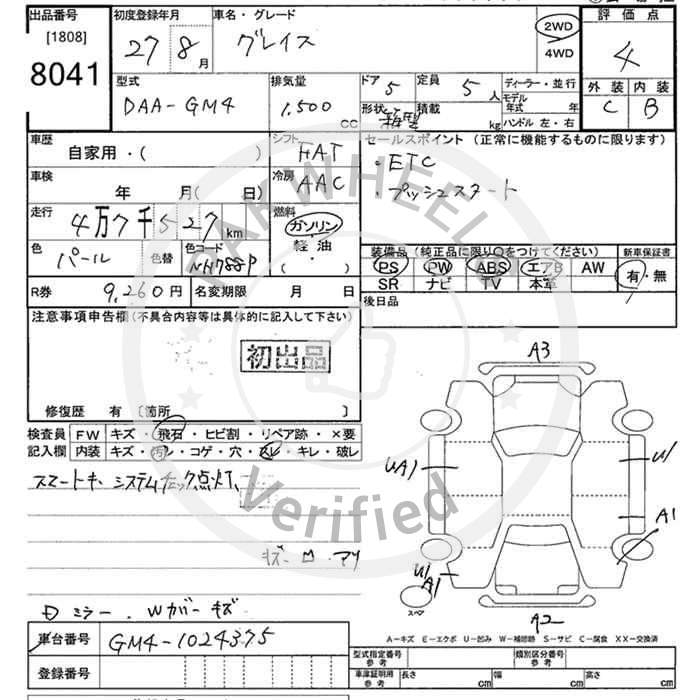 出品番号 初度登録年月 車名・グレード 評価点
[1808]
8041
27 8月 グレイス 2WD 4WD 4
型式 排気量 ドア 5 定員 5人 ディーラー・並行 外装 内装
DAA-GM4 1,500 cc 形状 積載 kg モデル年式 年 ハンドル 左・右 C B
車歴 シフト セールスポイント (正常に機能するものに限ります)
自家用・( ) FAT ・ETC
車検 年 月( 日) 冷房 AAC ・プッシュスタート
走行 4万7千527km 燃料 ガソリン・軽油・( )
色 パール 色替 色コード NH788P 装備品 (純正品に限り○をつけてください) 新車保証書
PS PW ABS エアB AW 有・無
SR ナビ TV 本革
R券 9,260円 名変期限 月 日 後日品
注意事項申告欄(不具合内容等は具体的に記入して下さい)
初出品
A3
修復歴 有 〔箇所 〕
検査員 FW キズ・飛石・ヒビ割・リペア跡・×要
記入欄 内装 キズ・汚シ・コゲ・穴・スレ・キレ・破レ
UA1 U1
スマートキーシステムチェック点灯、
A1
キズ
U1 A1
スペア
ミラー・Wカバーキズ
A2
A-キズ E-エクボ U-凹み W-補修跡 S-サビ C-腐食 XX-交換済
車台番号 GM4-1024375 型式指定番号 参考 類別区分番号 参考
登録番号 車庫証明用 参考 長さ cm 幅 cm 高さ cm
CAR WHEELS
Verified